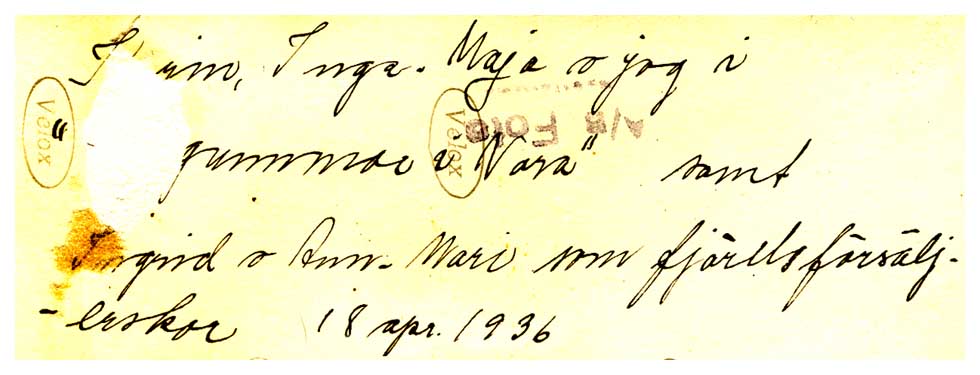 Inga-Maja o jag i
gummor i Nora" samt
Ingrid o Ann-Mari som fjärilsförsälj-
-erskor 18 apr. 1936
Velox
Velox
Foto